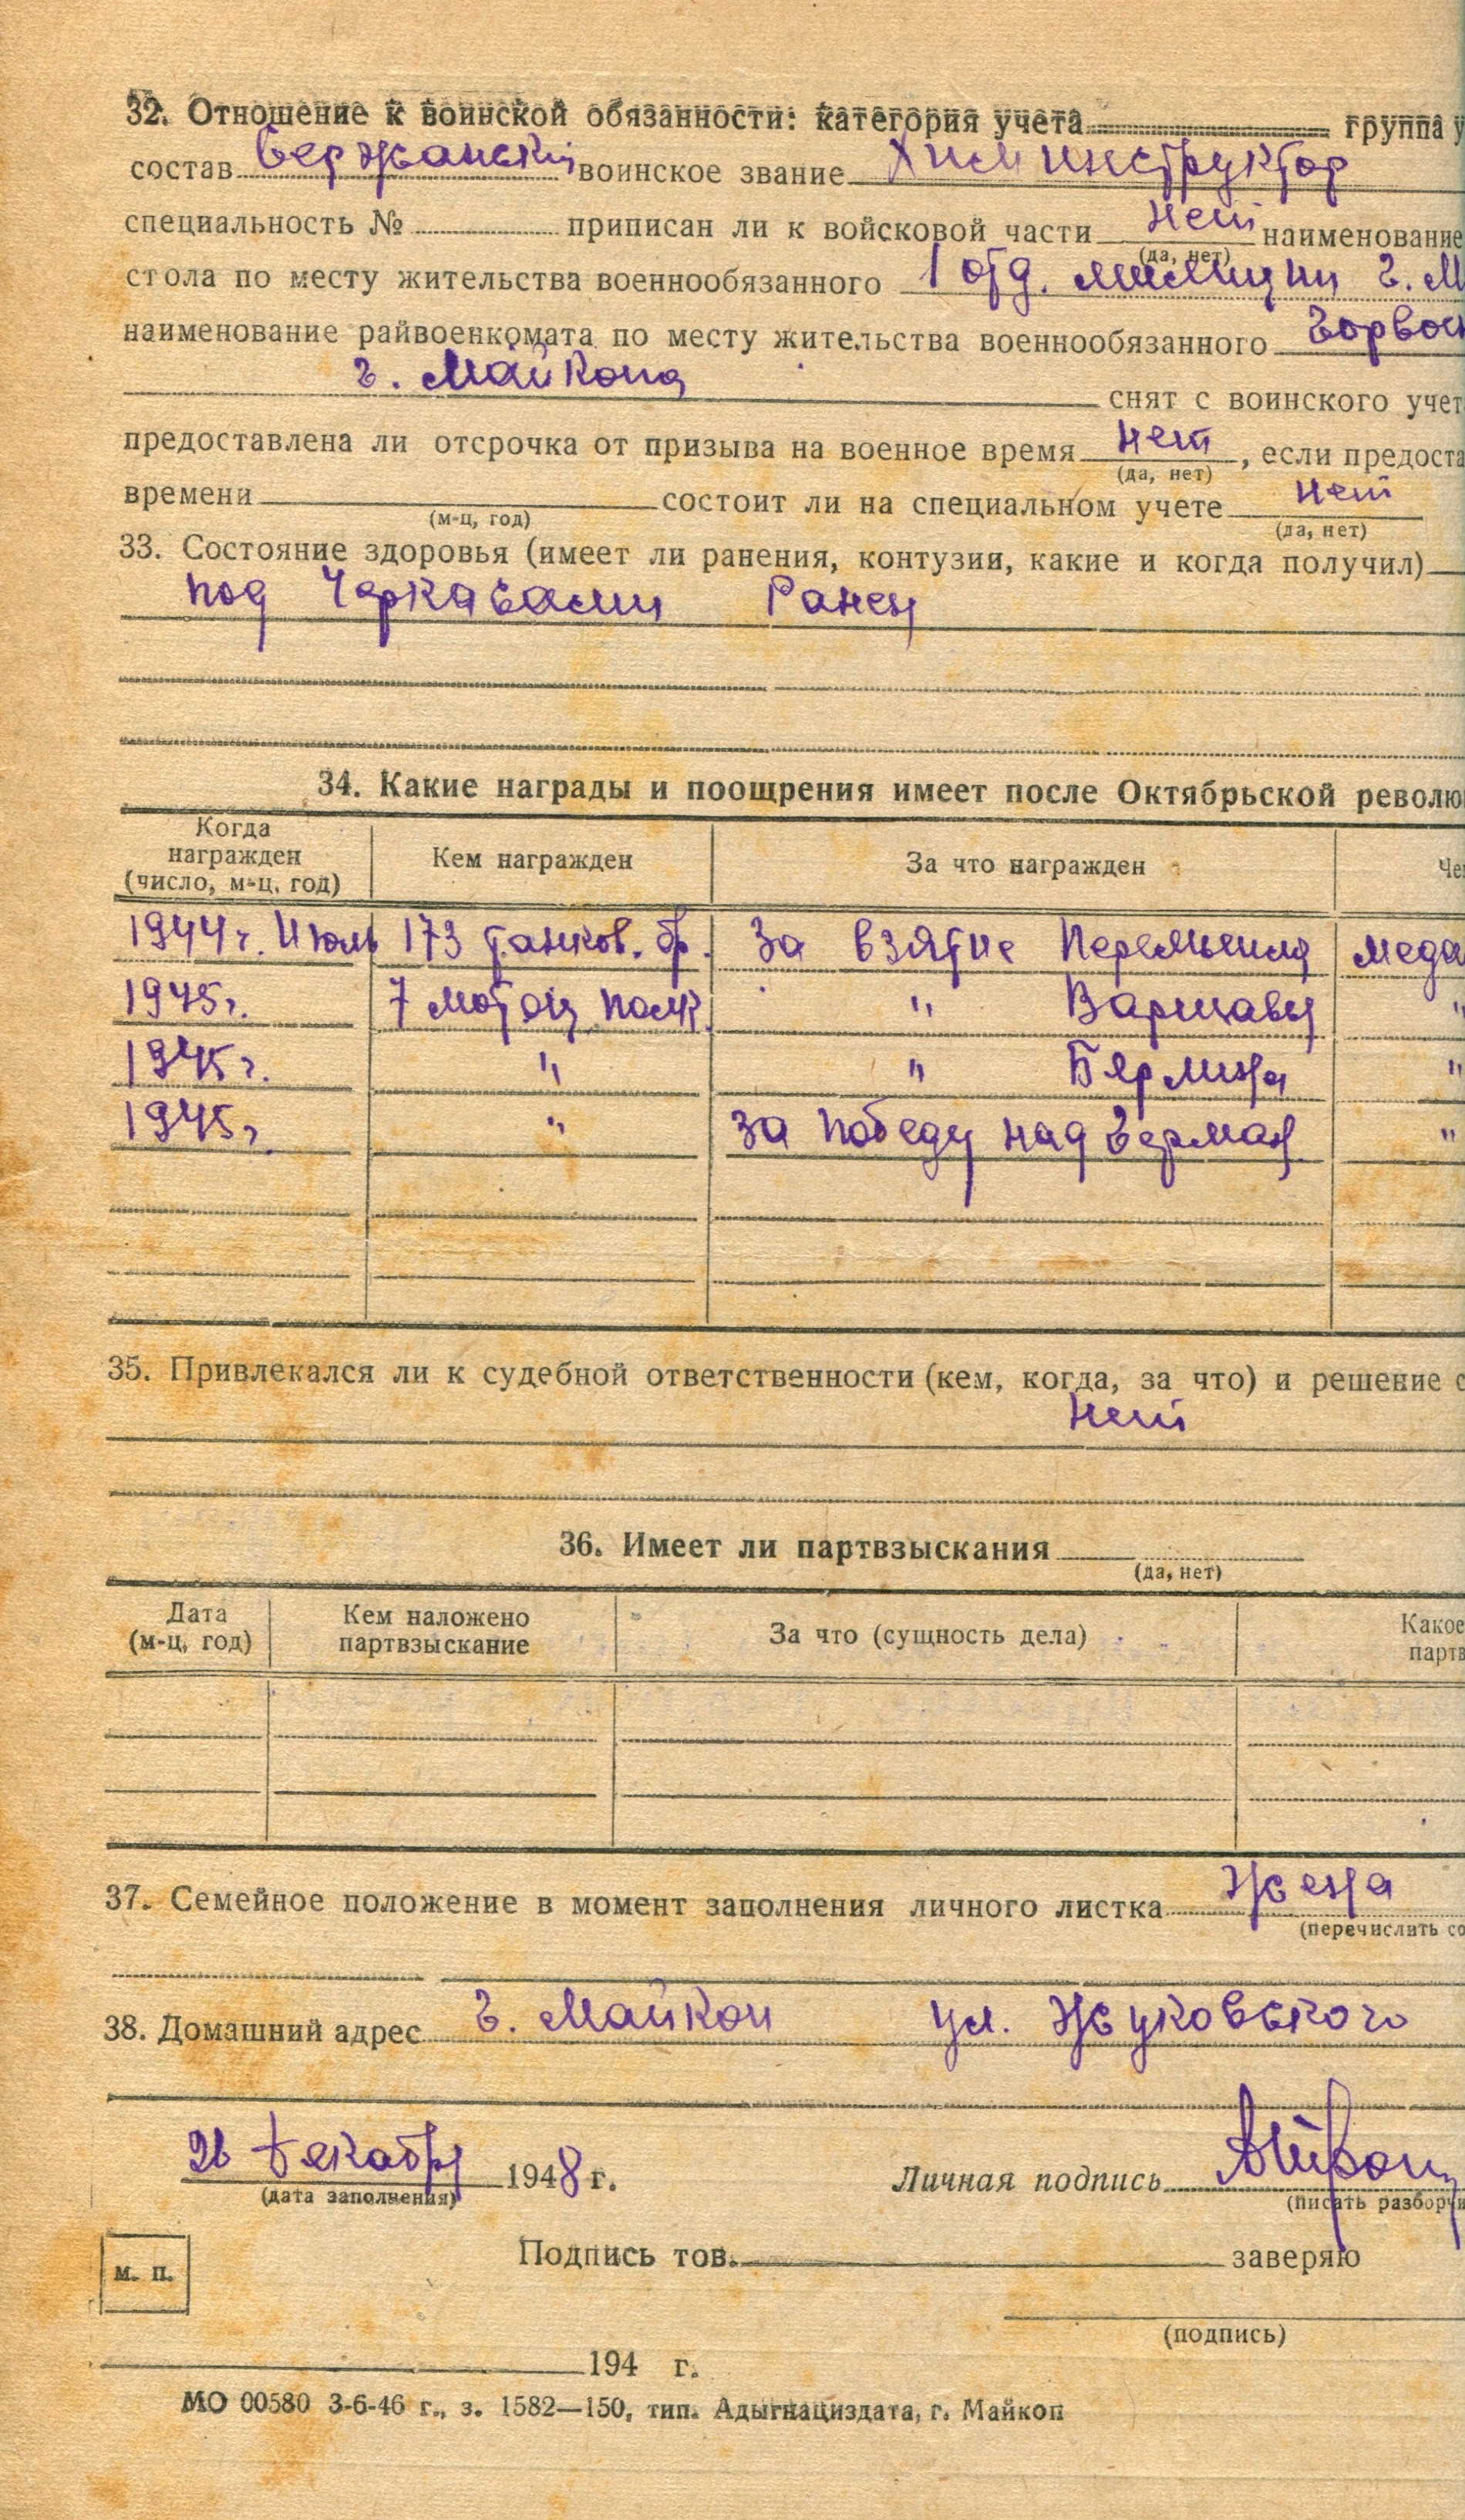 32. Отношение к воинской обязанности: категория учета группа у
состав Сержанский воинское звание Химинструктор
специальность № приписан ли к войсковой части нет наименование
(да, нет)
стола по месту жительства военнообязанного 1 отд. милиции г. М
наименование райвоенкомата по месту жительства военнообязанного Горвоен
г. Майкопа снят с воинского учет
предоставлена ли отсрочка от призыва на военное время нет, если предоста
(да, нет)
времени состоит ли на специальном учете нет
(м-ц, год) (да, нет)
33. Состояние здоровья (имеет ли ранения, контузии, какие и когда получил)
под Черкасами Ранен
34. Какие награды и поощрения имеет после Октябрьской револю
Когда награжден (число, м-ц, год) Кем награжден За что награжден Че
1944г. Июль 173 танков. бр. За взятие Перемышля меда
1945г. 7 мотоц. полк. " Варшавы "
1945г. " " Берлина "
1945г. " за победу над Герман "
35. Привлекался ли к судебной ответственности (кем, когда, за что) и решение с
Нет
36. Имеет ли партвзыскания
(да, нет)
Дата (м-ц, год) Кем наложено партвзыскание За что (сущность дела) Какое партв
37. Семейное положение в момент заполнения личного листка Жена
(перечислить со
38. Домашний адрес г. Майкоп ул. Жуковского
26 декабря 1948 г. Личная подпись
(дата заполнения) (писать разборчи
Подпись тов. заверяю
м. п.
(подпись)
194 г.
МО 00580 3-6-46 г., з. 1582—150, тип. Адыгнациздата, г. Майкоп